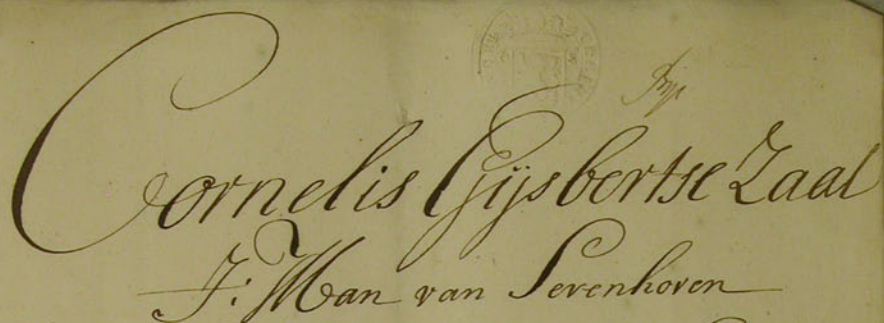 Cornelis Gijsbertse Zaal
J: Man van Sevenhoven